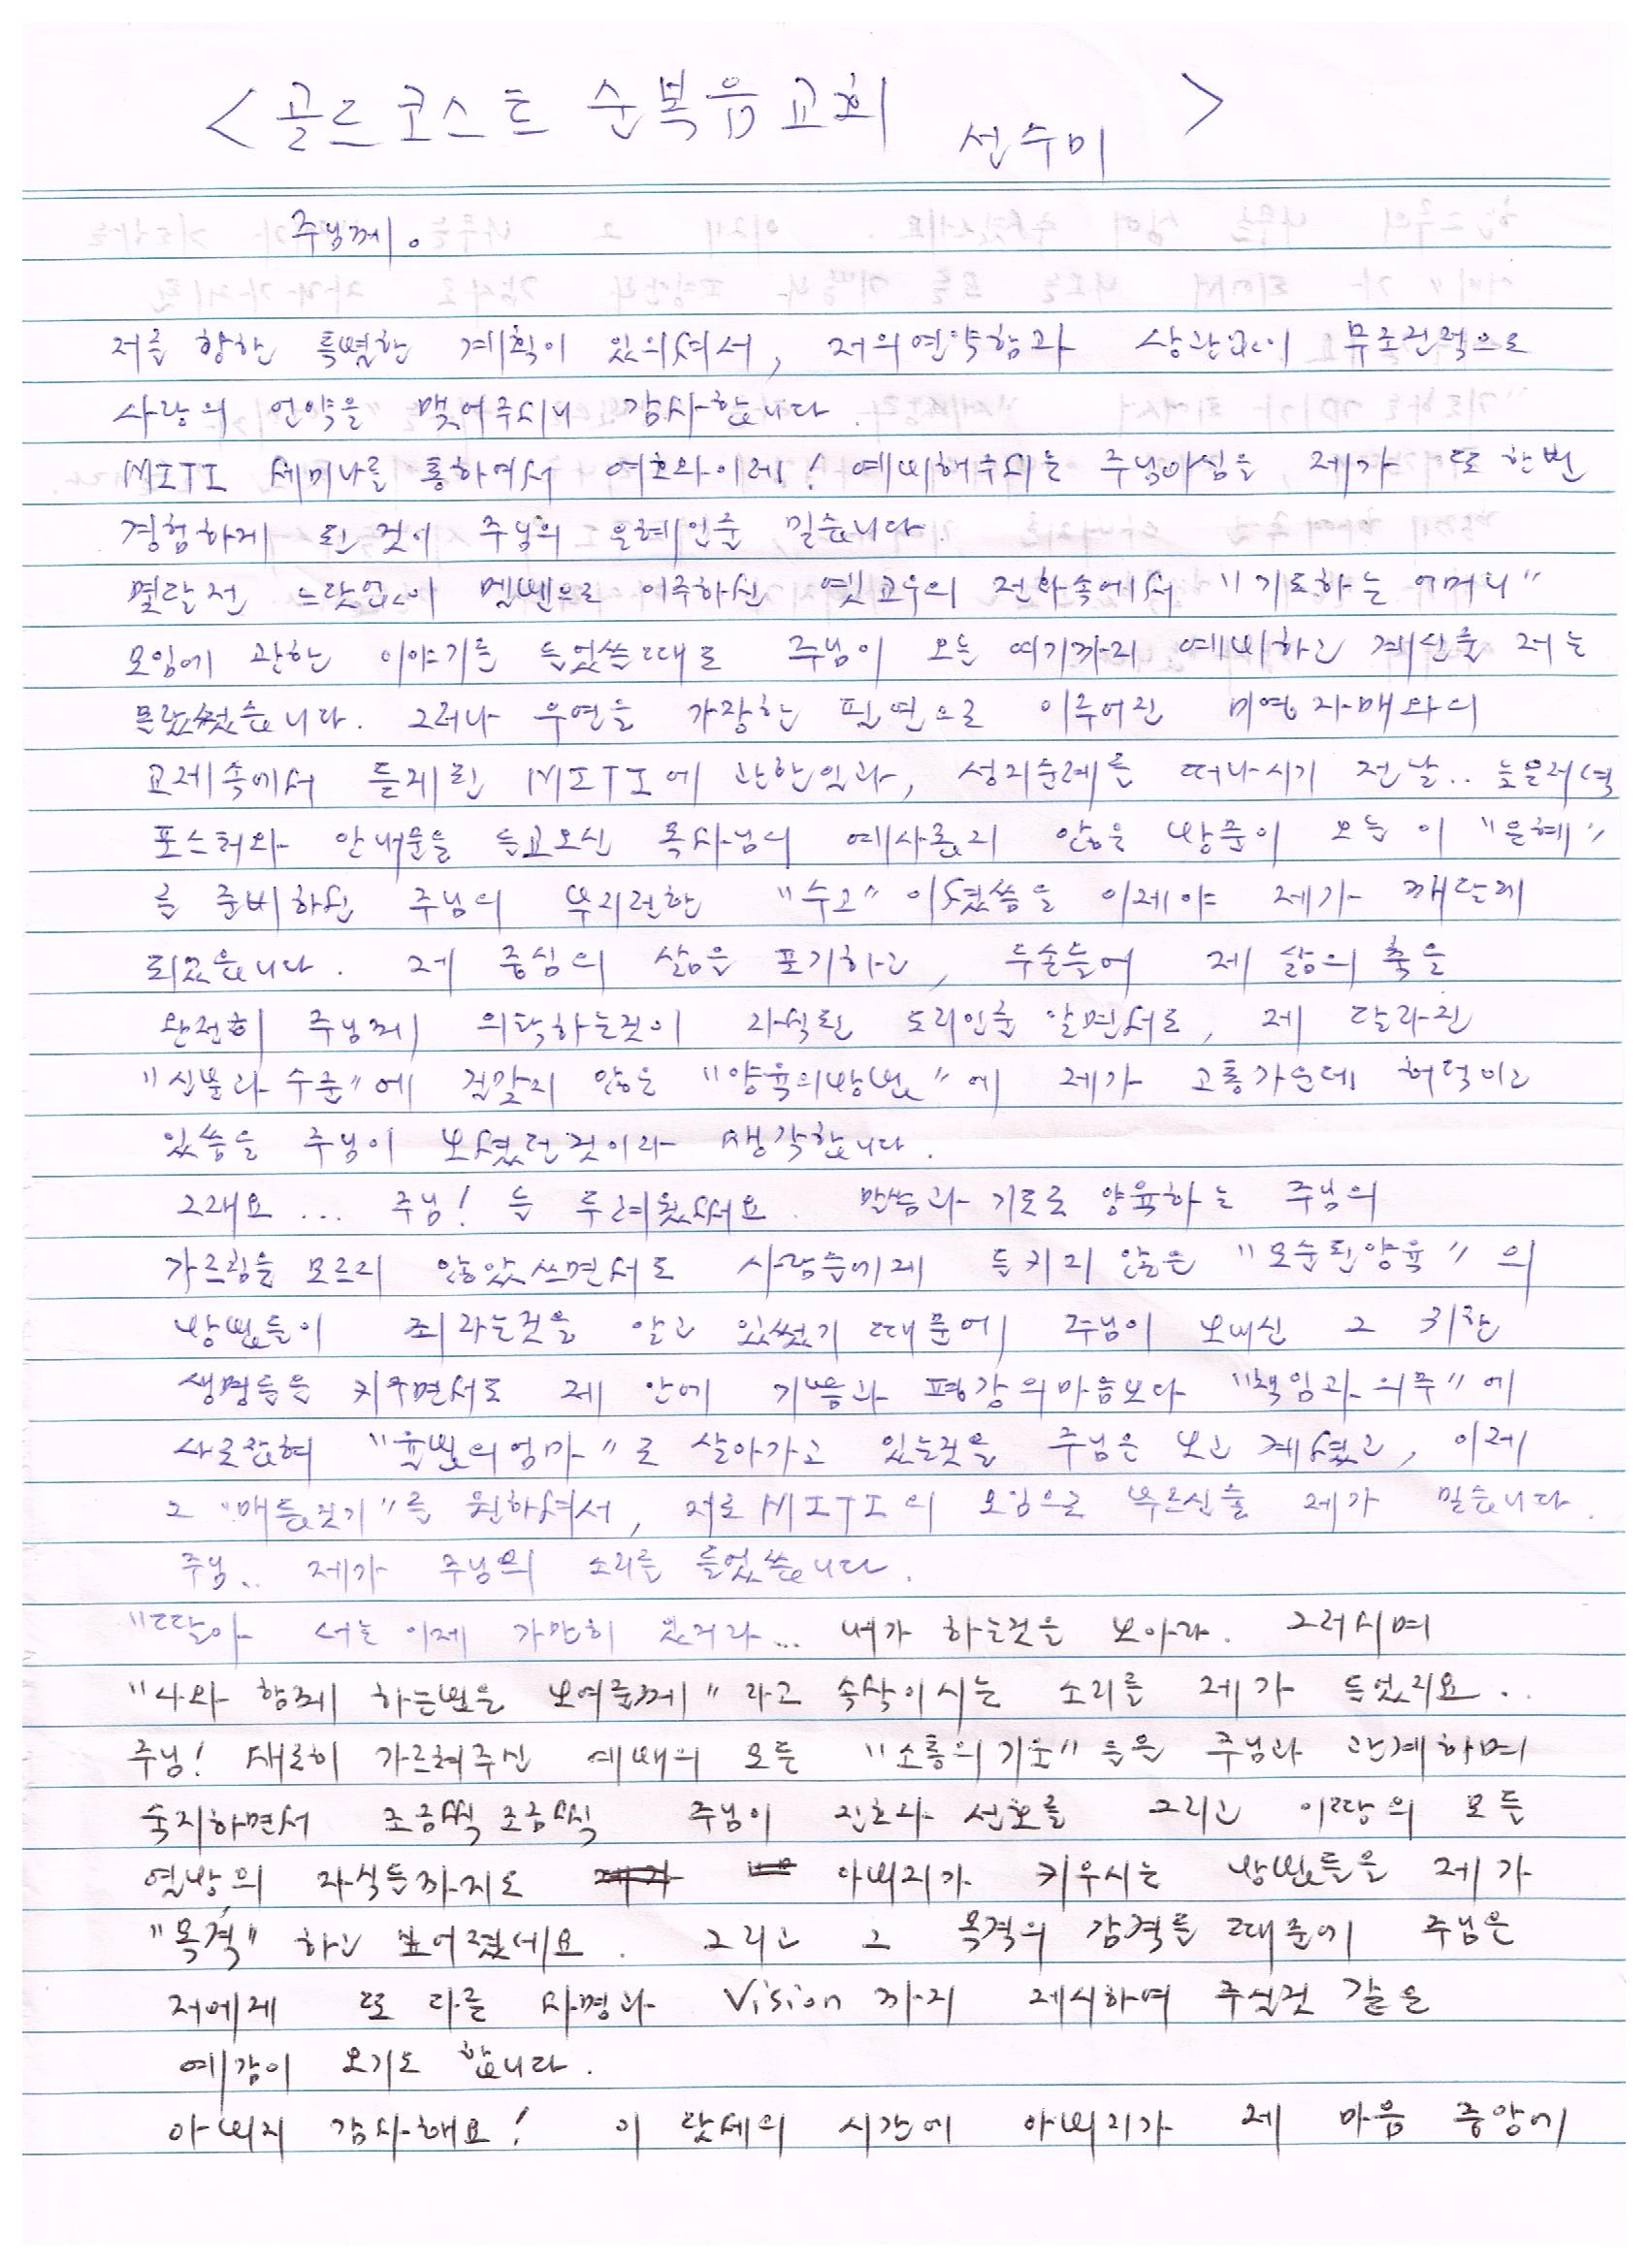 <골드코스트 순복음교회 선수미>
주님께.
저를 향한 특별한 계획이 있으셔서, 저의연약함과 상관없이 무조건적으로
사랑의 언약을 맺어주시니 감사합니다.
MITI 세미나를 통하여서 여호와이레! 예비해주시는 주님이심을 제가 또한번
경험하게 된 것이 주님의 은혜인줄 믿습니다
몇달전 느닷없이 멜벤으로 이주하신 옛교우의 전화속에서 "기도하는 어머니"
모임에 관한 이야기를 들었씀때도 주님이 오늘 여기까지 예비하고 계신줄 저는
몰랐썼습니다. 그러나 우연을 가장한 필연으로 이루어진 미영자매와의
교제속에서 듣게된 MITI에 관한일과, 성지순례를 떠나시기 전날.. 늦은저녁
포스터와 안내문을 들고오신 목사님의 예사롭지 않은 방문이 오늘 이 "은혜"
를 준비하신 주님의 부지런한 "수고"이셨씀을 이제야 제가 깨닫게
되었습니다. 제 중심의 삶을 포기하고, 두손들어 제 삶의 축을
완전히 주님께 의탁하는것이 자식된 도리인줄 알면서도, 제 달라진
"신분과 수준"에 걸맞지 않은 "양육의방법"에 제가 고통가운데 허덕이고
있씀을 주님이 보셨던것이라 생각합니다.
그래요... 주님! 늘 두려웠셔요. 말씀과 기도로 양육하는 주님의
가르침을 모르지 않았쓰면서도 사람들에게 들키지 않은 "모순된양육"의
방법들이 죄라는것을 알고 있썼기 때문에 주님이 보내신 그 귀한
생명들을 키우면서도 제 안에 기쁨과 평강의마음보다 "책임과 의무"에
사로잡혀 "율법의엄마"로 살아가고 있는것을 주님은 보고 계셨고, 이제
그 "매듭짓기"를 원하셔서, 저로 MITI의 모임으로 부르신줄 제가 믿습니다.
주님.. 제가 주님의 소리를 들었씁니다.
"딸아 너는 이제 가만히 있거라... 내가 하는것을 보아라. 그러시며
"나와 함께 하는법을 보여줄께"라고 속삭이시는 소리를 제가 들었지요..
주님! 새로히 가르쳐주신 예배의 모든 "소통의기초"들을 주님과 관계하며
숙지하면서 조금씩 조금씩 주님이 진호와 선호를 그리고 이땅의 모든
열방의 자식들까지도 아버지가 키우시는 방법들을 제가
"목격"하고 싶어졌네요. 그리고 그 목격의 감격들 때문에 주님은
저에게 또 다른 사명과 Vision까지 제시하여 주실것 같은
예감이 오기도 합니다.
아버지 감사해요! 이 닷세의 시간에 아버지가 제 마음 중앙에